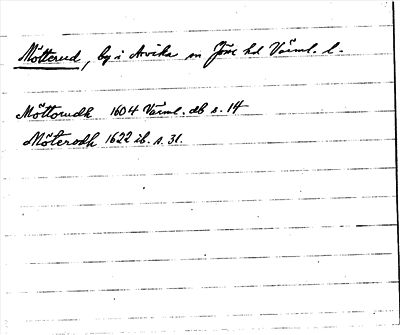 Mötterud, by i Arvika sn Jöse hd Värml. l.
Möttorudh 1604 Värml. db s. 14
Möterodh 1622 ib. s. 31.